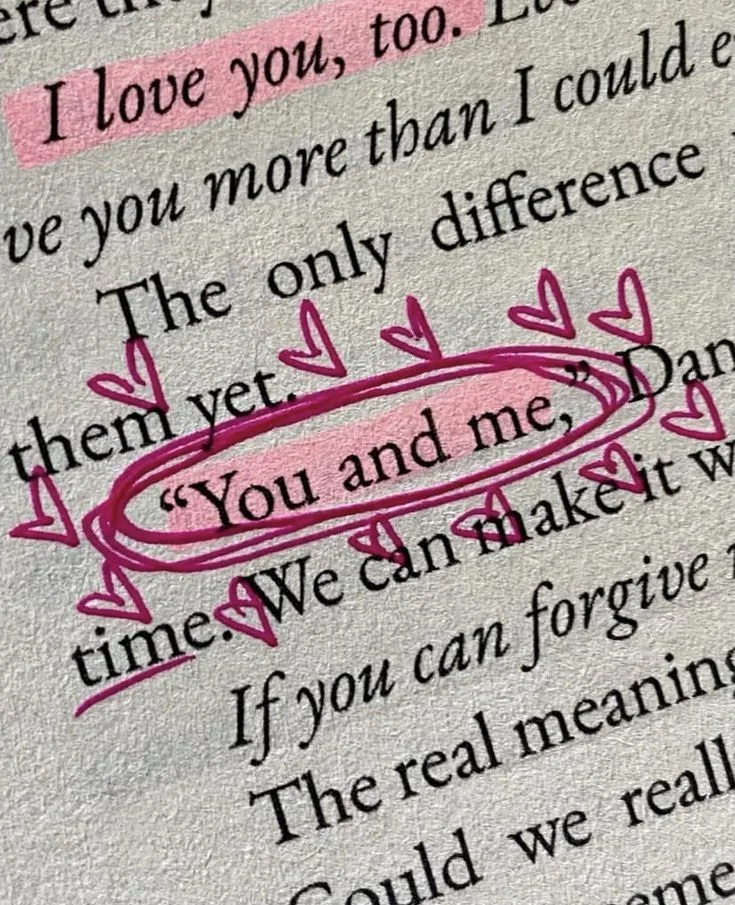 I love you, too.
ve you more than I could
The only difference
them yet.
“You and me,” Dan
time. We can make it
If you can forgive
The real meaning
Could we reall